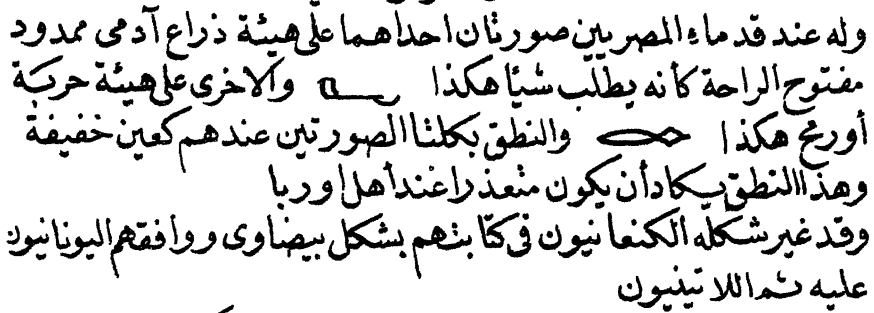 وله عند قدماء المصريين صورتان احداهما على هيئة ذراع آدمى ممدود
مفتوح الراحة كأنه يطلب شيأ هكذا والاخرى على هيئة حربة
أو رمح هكذا والنطق بكلتا الصورتين عندهم كعين خفيفة
وهذا النطق يكاد أن يكون متعذرا عند أهل اوربا
وقد غير شكله الكنعانيون فى كتابتهم بشكل بيضاوى ووافقهم اليونانيون
عليه ثم اللاتينيون